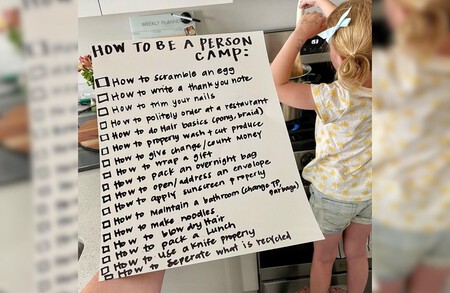 WEEKLY PLANNER
HOW TO BE A PERSON
CAMP:
How to scramble an egg
How to write a thank you note
How to trim your nails
How to politely order at a restaurant
How to do Hair basics (pony, braid)
How to properly wash + cut produce
How to give change/count money
How to wrap a gift
How to pack an overnight bag
How to open/address an envelope
How to apply sunscreen properly
How to maintain a bathroom (change TP,
garbages)
How to make noodles
How to blow dry hair
How to pack a lunch
How to use a knife properly
How to seperate what is recycled